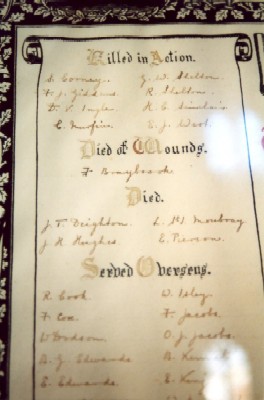 Killed in Action.
S. Corney. G. W. Skelton.
F. J. Giddens R. Skelton.
D. V. Ingle H. C. Sinclair
C. E. J. Ward.
Died of Wounds.
F. Braybrook
Died.
J. T. Deighton. L. St J Mowbray
J. H. Hughes E. Pierson.
Served Overseas.
R. Cook W. Isley
F. Cox. F. Jacobs.
W Dodson O. J. Jacobs.
A. J. Edwards A.
E. Edwards. E.